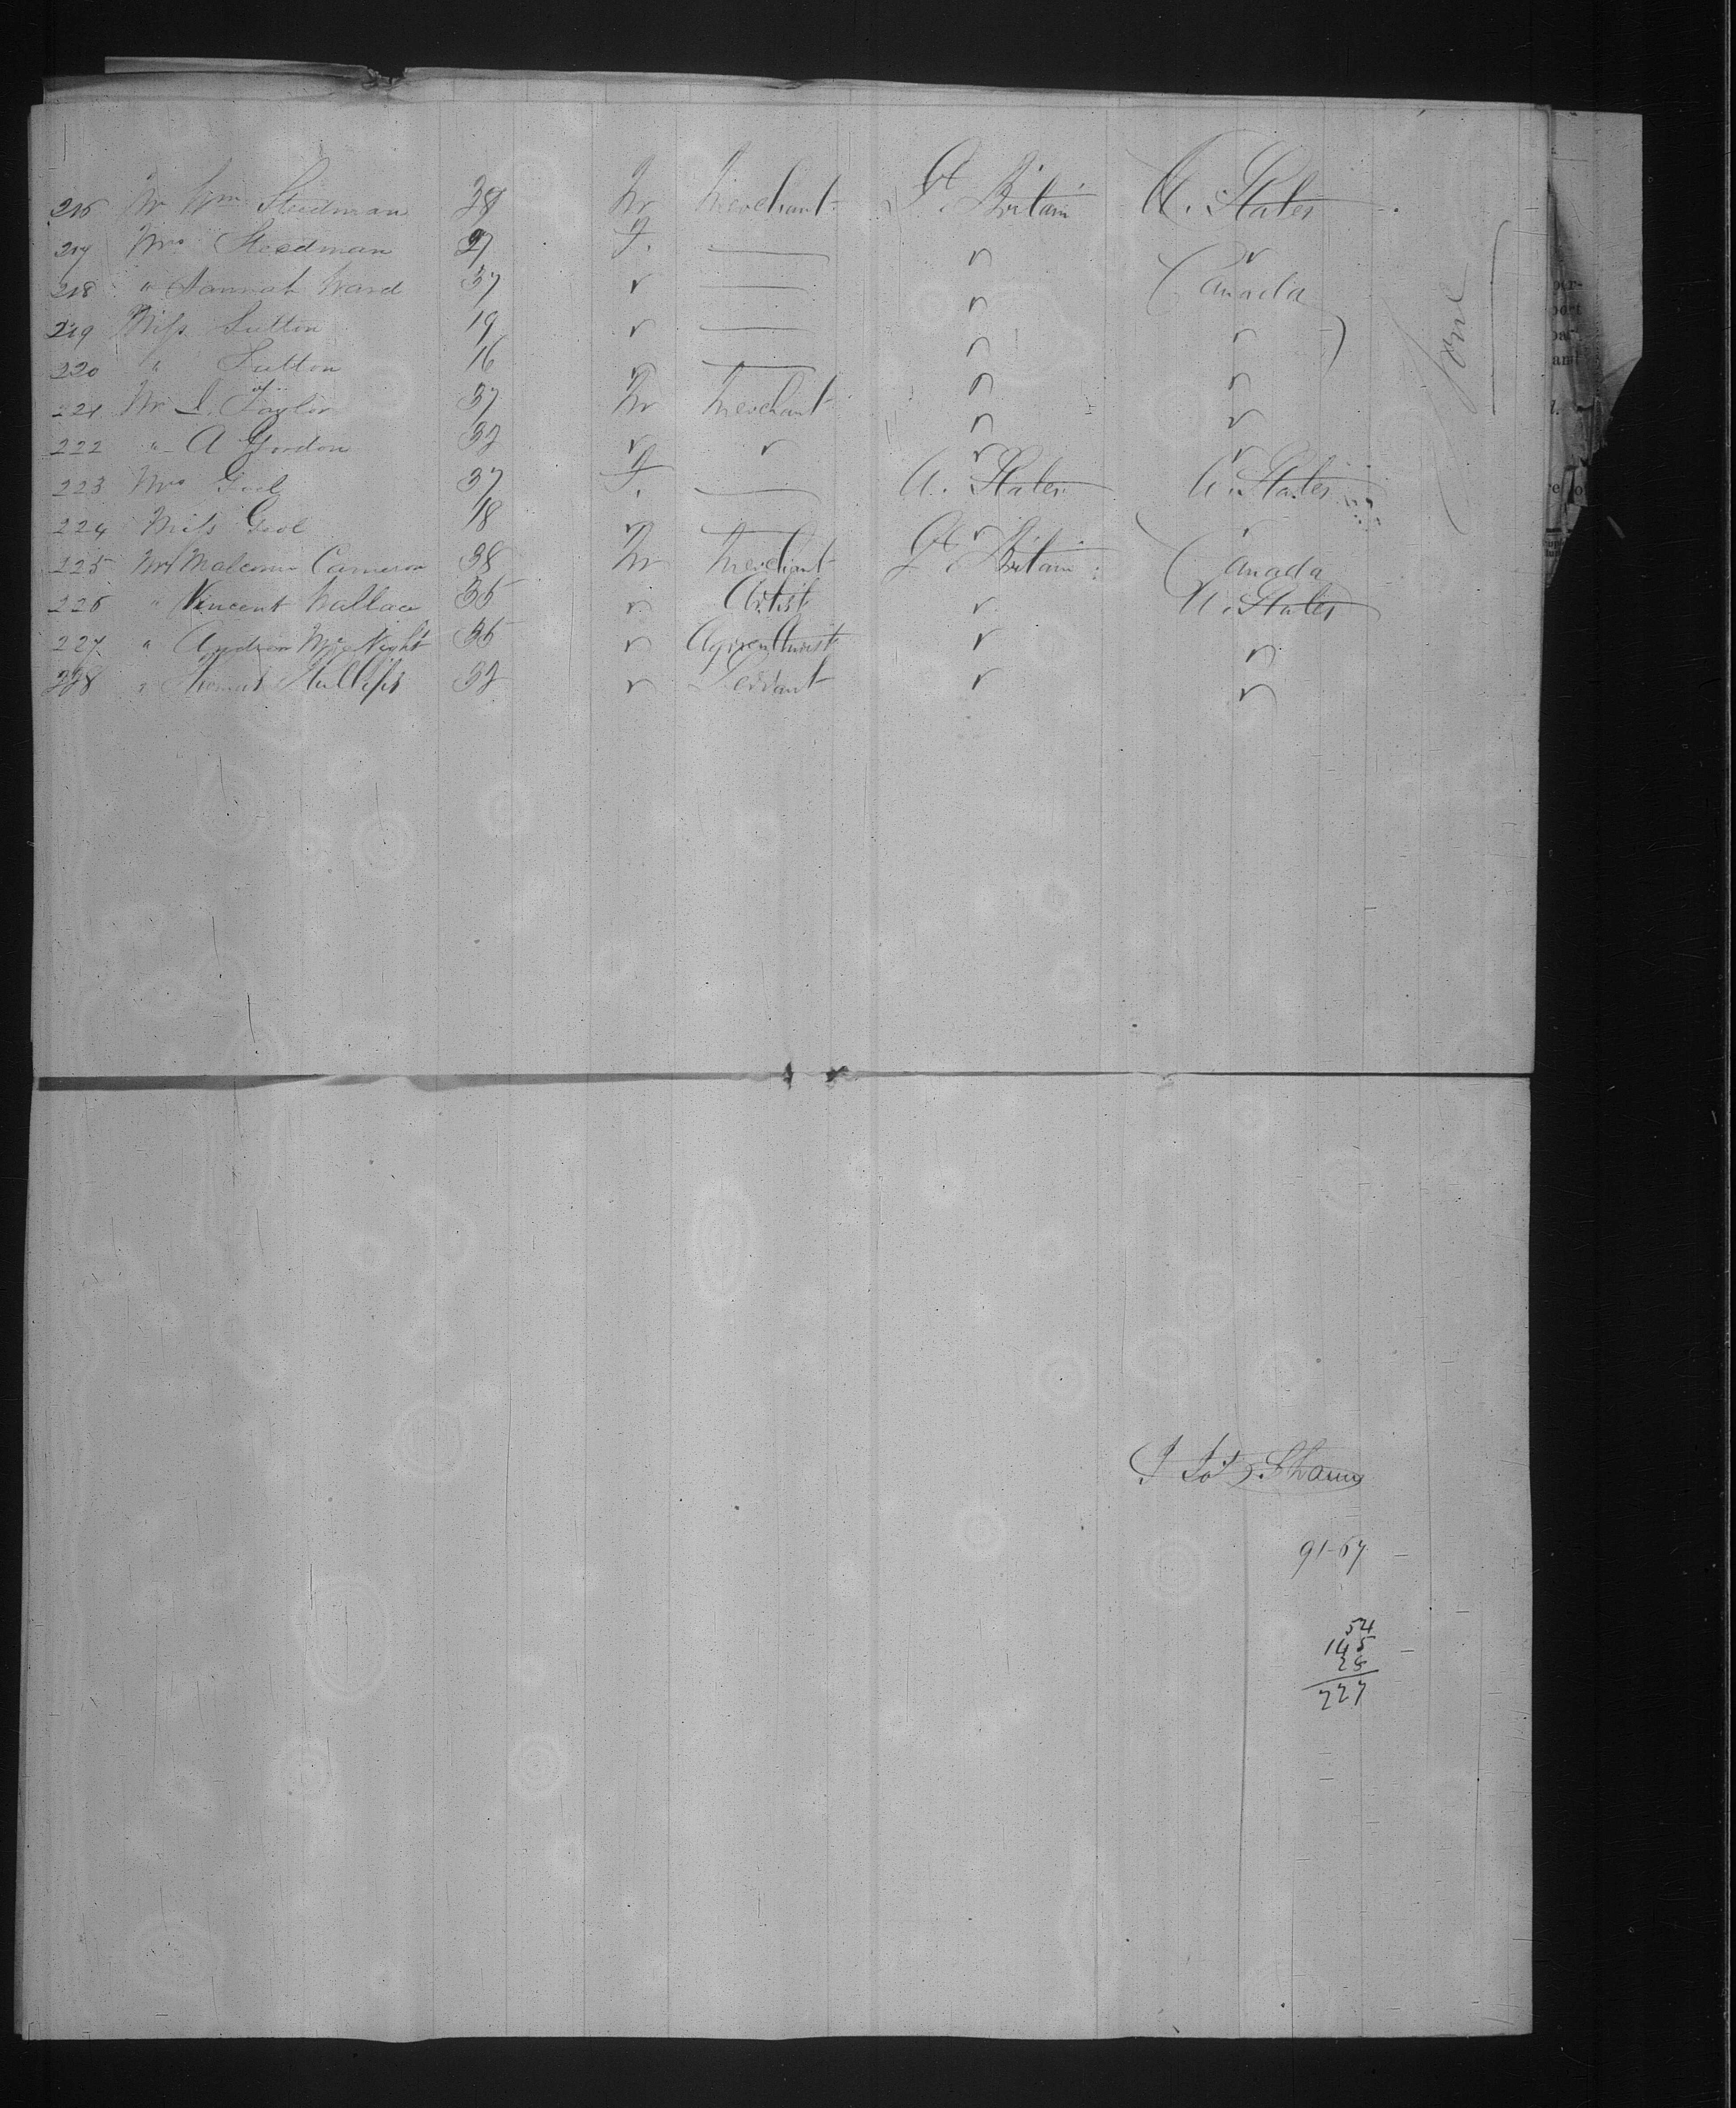 216 Mr Wm Steedman 38 M Merchant Gt. Britain U. States
217 Mrs Steedman 27 F. — " "
218 " Hannah Ward 37 " — " Canada
219 Miss Sutton 19 " — " "
220 " Sutton 16 " — " "
221 Mr J. Taylor 37 M Merchant " "
222 " A Gordon 32 " " " "
223 Mrs 37 F. — U. States U. States
224 Miss 18 " — " "
225 Mr Malcomn Cameron 38 M Merchant Gt. Britain Canada
226 " Vincent Wallace 35 " Artist " U. States
227 " Andrew McNight 35 " Agriculturist " "
228 " Thomas 32 " Servant " "
None
91-67
54
145
28
227